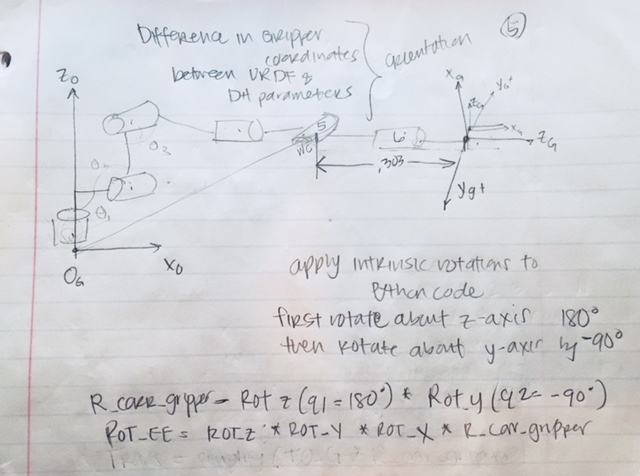 Difference in Gripper
coordinates
between URDF &
DH parameters
orientation
5
Z0
θ3
θ1
OG
X0
WC
5
6
.303
XG
YG+
ZG
Yg+
apply intrinsic rotations to
Python code
first rotate about z-axis 180°
then rotate about y-axis by -90°
R_corr_gripper = Rot z (q1=180°) * Rot_y (q2= -90°)
ROT_EE = ROT_Z * ROT_Y * ROT_X * R_cor_gripper